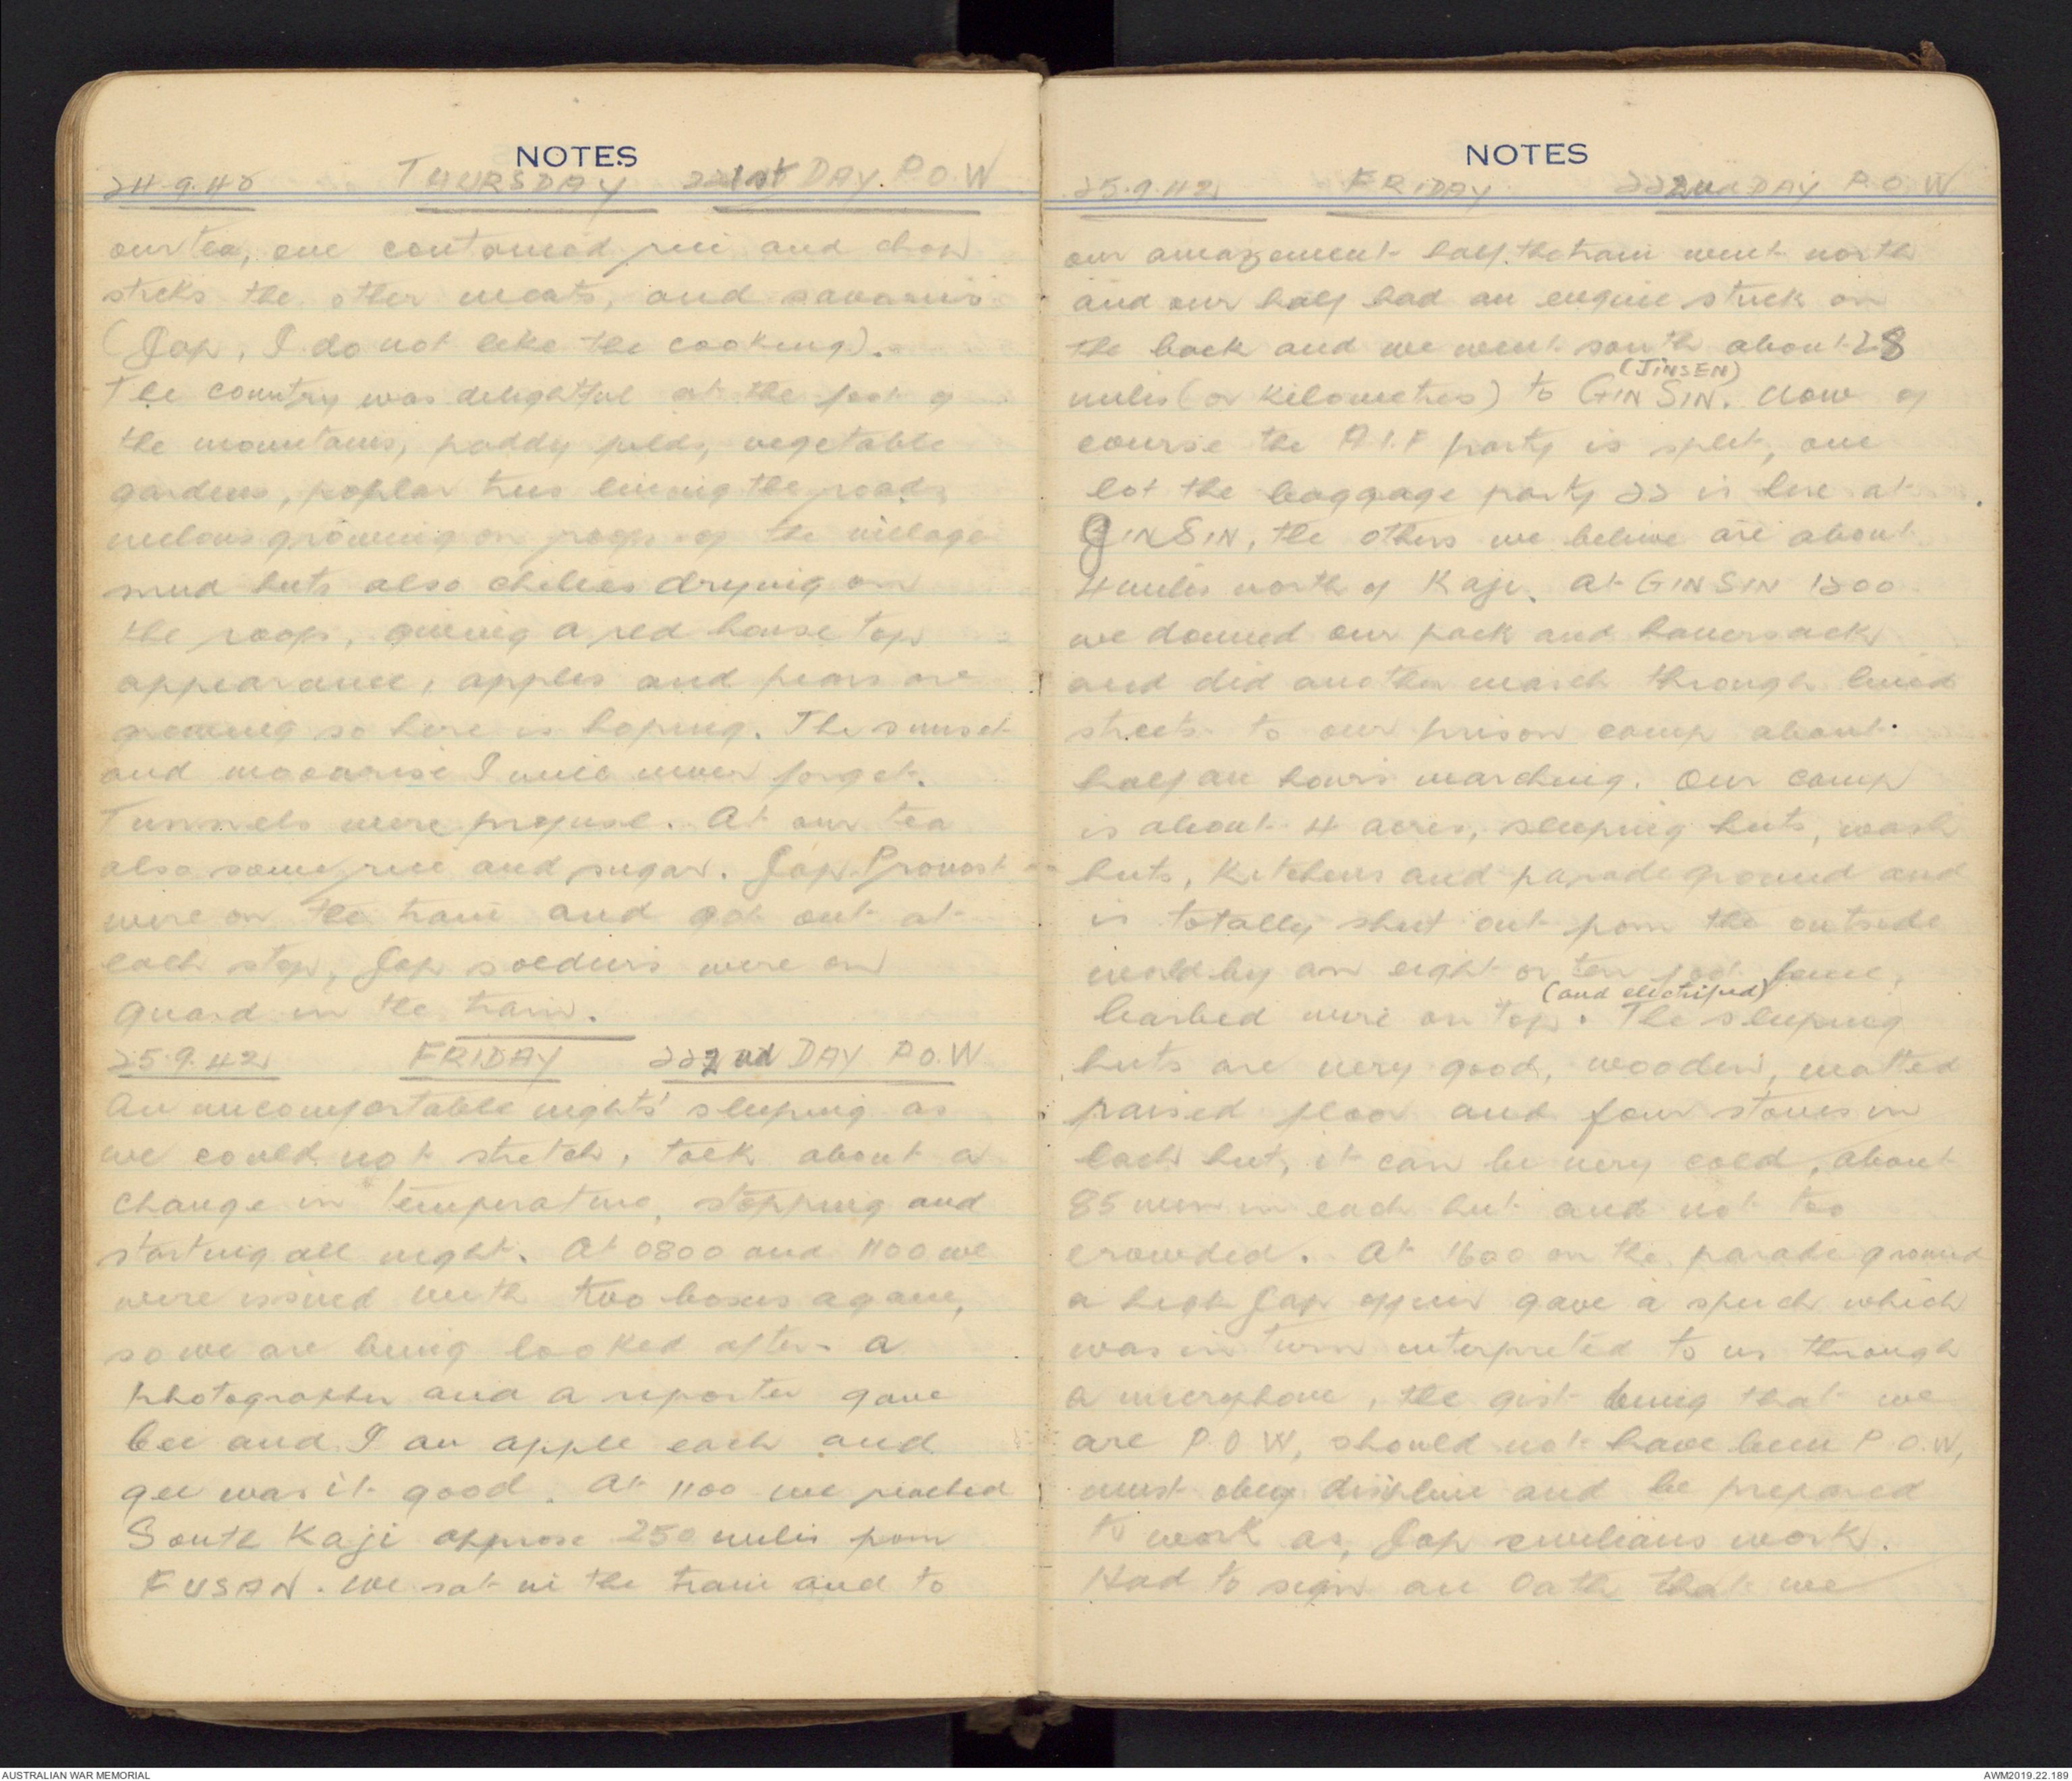 NOTES
24.9.42 THURSDAY 221st DAY P.O.W
our tea, one contained rice and chop
sticks the other meats, and savouries
(Jap, I do not like the cooking).
The country was delightful at the foot of
the mountains, paddy fields, vegetable
gardens, poplar trees lining the roads,
melons growing on roofs of the village
mud huts also chilies drying on
the roofs, giving a red house top
appearance, apples and pears are
growing so here is hoping. The sunset
and moonrise I will never forget.
Tunnels were profuse. At our tea
also some rice and sugar. Jap Provost
were on the train and got out at
each stop, Jap soldiers were on
guard in the train.
25.9.42 FRIDAY 222nd DAY P.O.W
An uncomfortable nights' sleeping as
we could not stretch, talk about a
change in temperature, stopping and
starting all night. At 0800 and 1100 we
were issued with two boxes again,
so we are being looked after. A
photographer and a reporter gave
and I an apple each and
gee was it good. At 1100 we reached
South Kaji approx 250 miles from
FUSAN. We sat in the train and to
NOTES
25.9.42 FRIDAY 222nd DAY P.O.W
our amazement half the train went north
and our half had an engine stuck on
the back and we went south about 28
(JINSEN)
miles (or kilometres) to GINSIN. Now of
course the A.I.F party is split, one
lot the baggage party 22 is here at
GINSIN, the others we believe are about
4 miles north of Kaji. At GINSIN 1300
we donned our pack and haversack
and did another march through lined
streets to our prison camp about
half an hours marching. Our camp
is about 4 acres, sleeping huts, wash
huts, kitchens and parade ground and
is totally shut out from the outside
world by an eight or ten foot fence,
(and electrified)
barbed wire on top. The sleeping
huts are very good, wooden, matted
raised floor and four stoves in
each hut, it can be very cold, about
85 men in each hut and not too
crowded. At 1600 on the parade ground
a high Jap officer gave a speech which
was in turn interpreted to us through
a microphone, the gist being that we
are P.O.W, should not have been P.O.W,
must obey discipline and be prepared
to work as Jap civilians work.
Had to sign an Oath that we
AUSTRALIAN WAR MEMORIAL
AWM2019.22.189